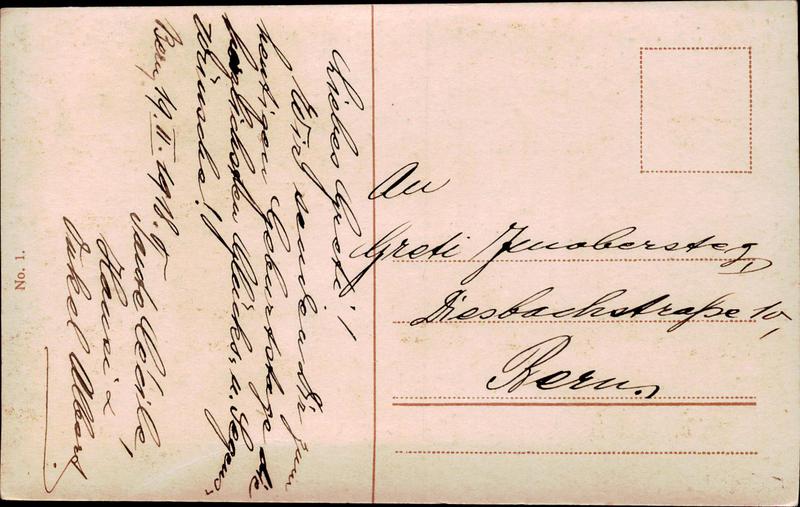 Liebes Greti!
Wir senden Dir zum
heutigen Geburtstage die
herzlichsten Glücks- u. Segens-
wünsche!
Bern, 19. II. 1918.
Tante Cécile,
Hansi &
Onkel Albert
An
Greti Jmobersteg,
Diesbachstraße 10,
Bern.
No. 1.